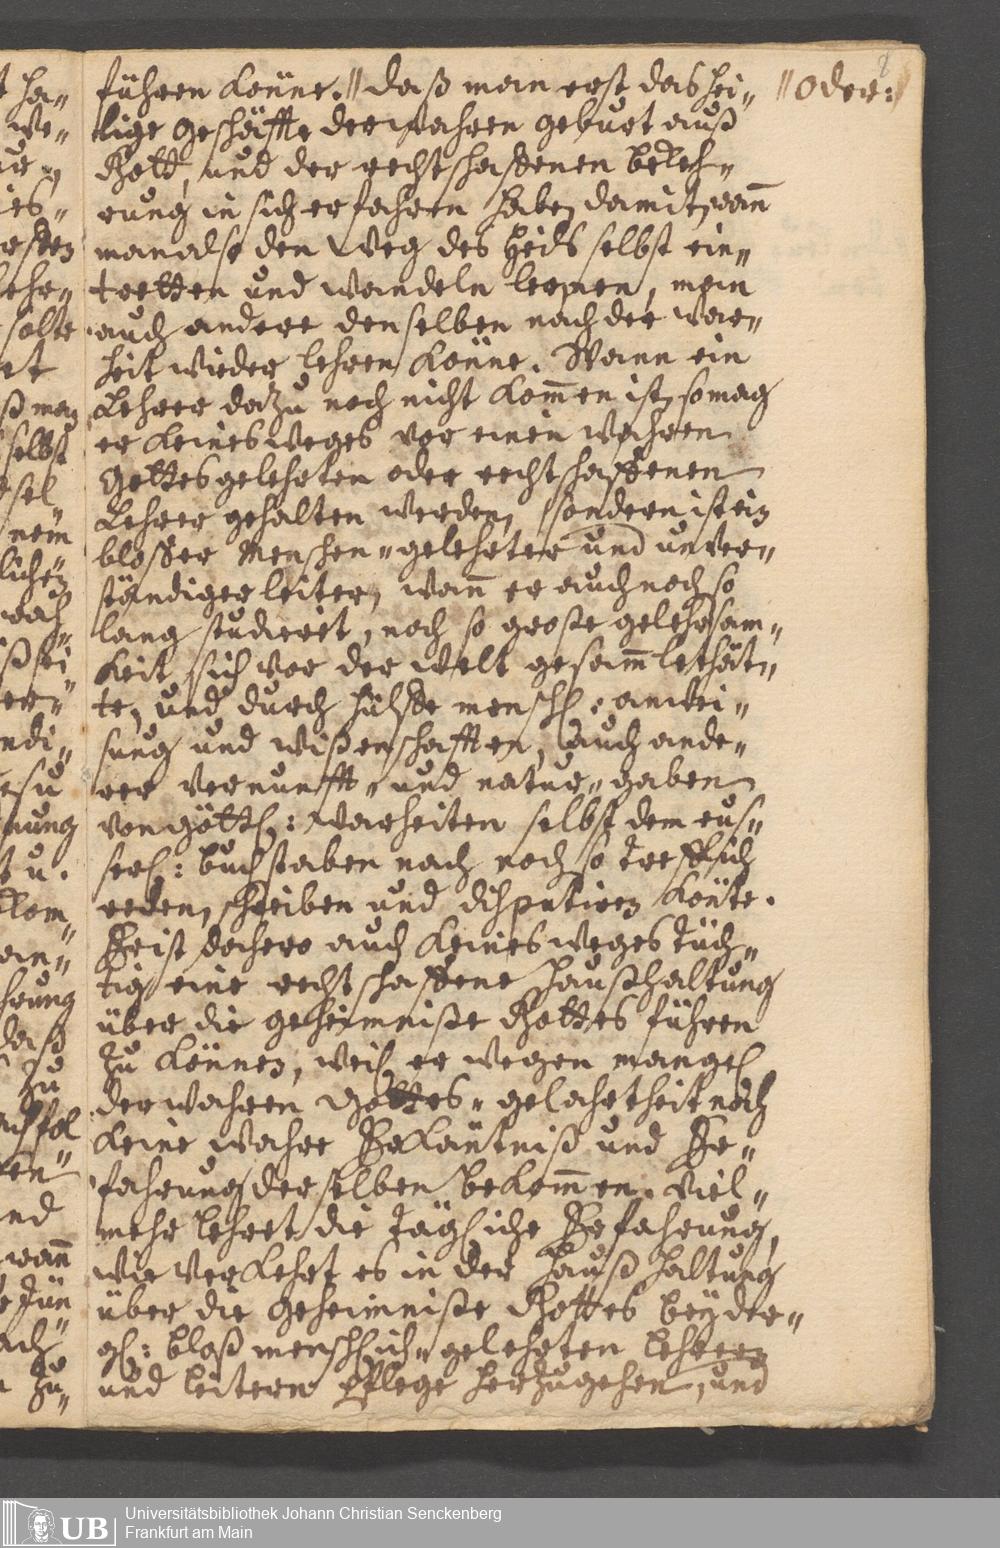 führen könne. // daß man erst das hei-
lige Geschäffte der wahren geburt auß
Gott, und der rechtschaffenen bekeh-
rung in sich erfahren habe, damit wann
man also den Weg des selbst ein-
tretten und wandeln lernen, man
auch andere denselben nach der war-
heit wieder lehren könne. Wann ein
Lehrer dazu noch nicht kommen ist, so mag
er keines weges vor einen wahren
Gottesgelehrten oder rechtschaffenen
Lehrer gehalten werden, sondern ist ein
blosser Menschen-gelehrter und unver-
ständiger leiter, wann er auch noch so
lang studieret, noch so grosse gelehrsam-
keit sich vor der welt gesammlet hät-
te, und durch hülffe menschl. anwei-
sung und wißenschafften, auch ande-
rer vernunfft- und natur-gaben
von göttl: warheiten selbst dem eus-
serl: buchstaben nach noch so trefflich
reden, schreiben und disputiren könte.
Er ist dahero auch keines weges tüch-
tig eine rechtschaffene Haußhaltung
über die geheimniße Gottes führen
zu können, weil er wegen mangel
der wahren Gottes-gelahrtheit noch
keine wahre Erkäntniß und Er-
fahrung derselben bekommen. Viel-
mehr lehret die tägliche Erfahrung,
wie verkehrt es in der Haußhaltung
über die Geheimniße Gottes bey der-
gl: bloß menschlich-gelehrten lehrern
und leitern pflege herzugehen, und
// oder:
8
t ha-
we-
ies-
ersten
lehr-
solte
et
ß man
selbst
sel-
nem
lichen
nach-
ß sei
er-
ndi-
esu
nung
t u.
kom-
an-
hrung
daß
zu
achfol
ten-
nd
wann
Jün
ach
zu-
Universitätsbibliothek Johann Christian Senckenberg
Frankfurt am Main
UB